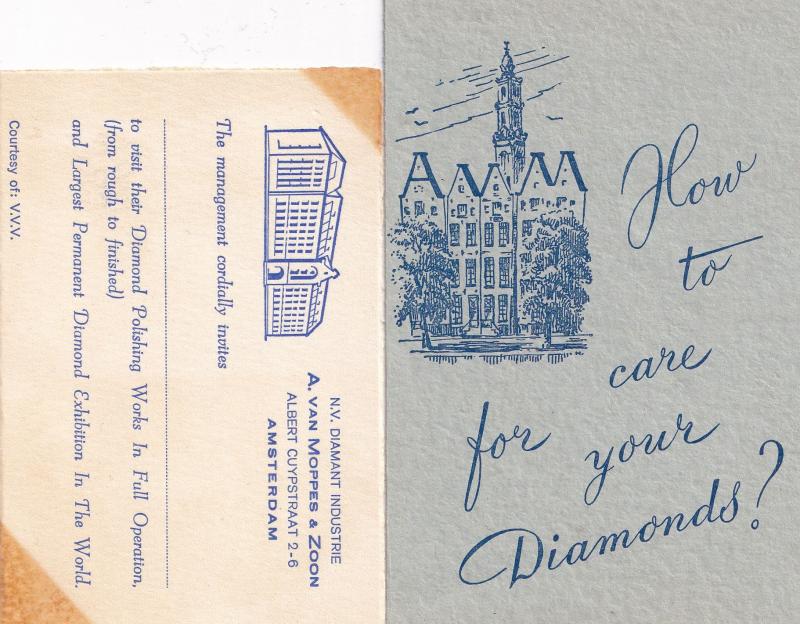 N.V. DIAMANT INDUSTRIE
A. VAN MOPPES & ZOON
ALBERT CUYPSTRAAT 2-6
AMSTERDAM
The management cordially invites
to visit their Diamond Polishing Works In Full Operation,
(from rough to finished)
and Largest Permanent Diamond Exhibition In The World.
Courtesy of: V.V.V.
AVM
How
to
care
for your
Diamonds?